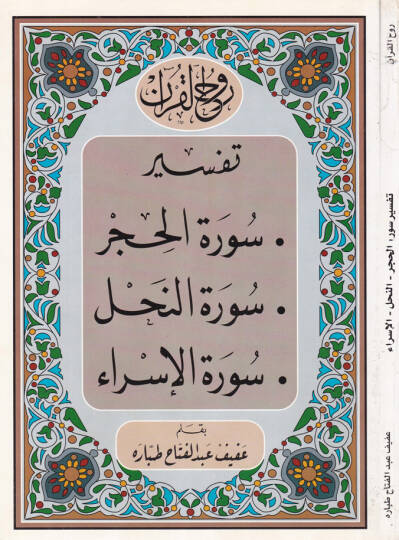 روح القرآن
تفسير
• سُورَة الحِجْر
• سُورَة النَحْل
• سُورَة الإسْراء
بقلم
عفيف عبد الفتاح طبّاره
روح القرآن
تفسير سور: الحجر - النحل - الإسراء
عفيف عبد الفتاح طباره